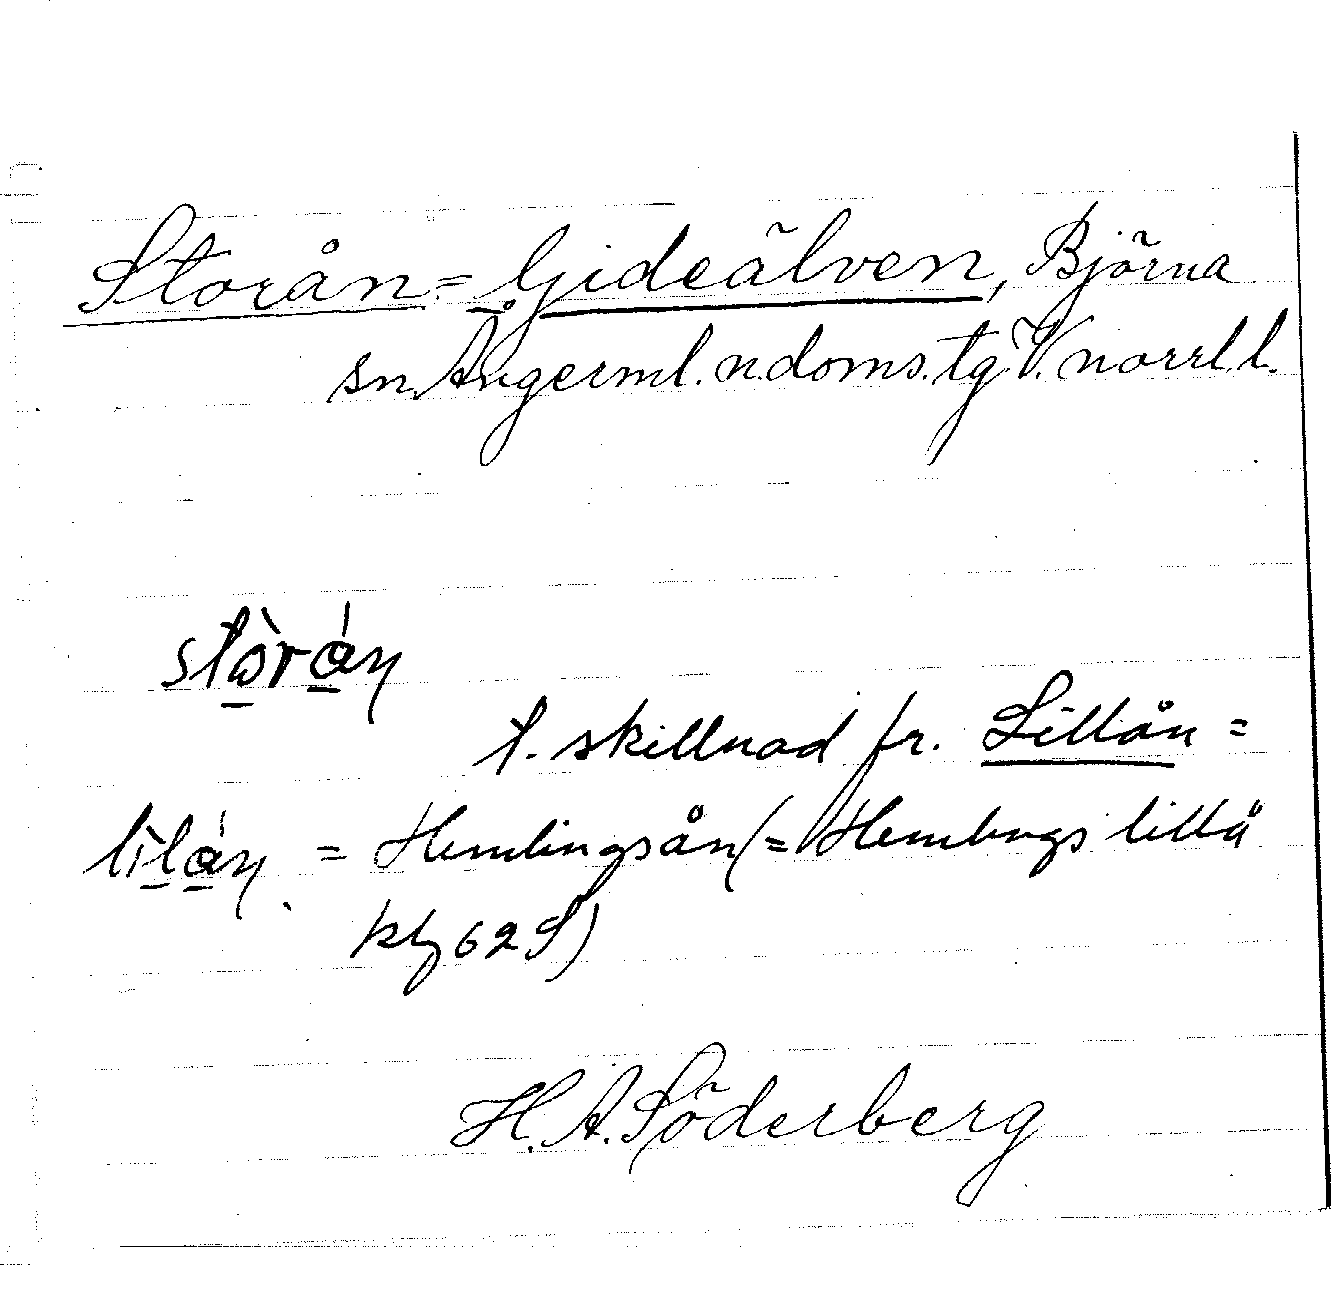 Storån = Gideälven, Björna
sn. Ångerml. n. doms. tg V. norrl. l.
stòrán
t. skillnad fr. Lillån =
lìlán = Hemlingsån (= Hemlings lillå
kbl 62 S)
H. A. Söderberg